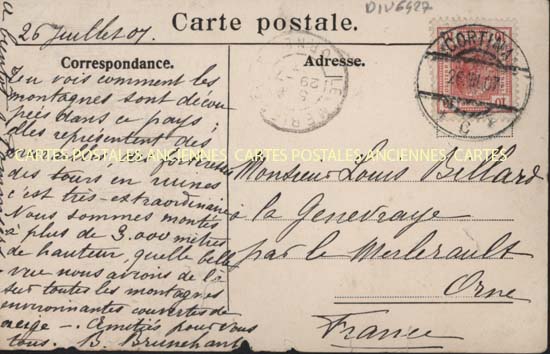 DIV6427
Carte postale.
26 Juillet 07.
Correspondance.
Adresse.
CORTINA
26 VII 07
Tu vois comment les
montagnes sont décou
pées dans ce pays;
elles représentent des
CARTES POSTALES ANCIENNES CARTES POSTALES ANCIENNES CARTES POSTALES ANCIENNES
des tours en ruines
c'est très-extraordinaire
Nous sommes montés
à plus de 3.000 mètres
de hauteur, quelle belle
vue nous avions de là
sur toutes les montagnes
environnantes couvertes de
neige -. Amitiés pour vous
tous. B. Brunehant
Monsieur Louis Billard
à la Genevraye
par le Merlerault
Orne
France